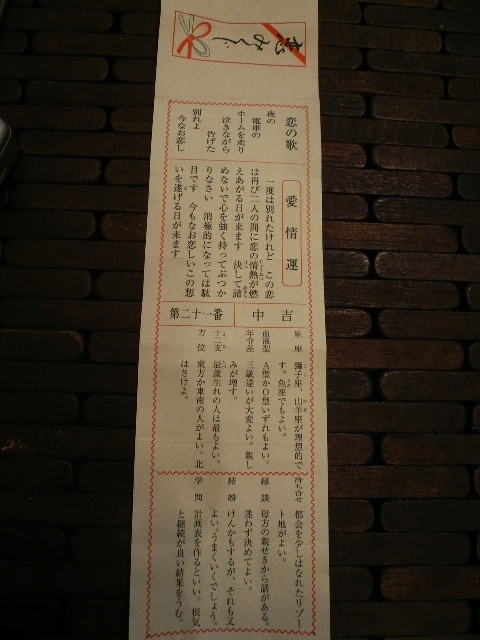 恋みくじ
恋の歌
夜の
電車の
ホームを走り
泣きながら
告げた
別れよ
今なお恋し
愛情運
一度は別れたけれど この恋
は再び二人の間に恋の情熱が燃
えあがる日が来ます 決して諦
めないで心を強く持ってぶつか
りなさい 消極的になっては駄
目です 今もなお恋しいこの想
いを遂げる日が来ます
中吉
第二十一番
星座 獅子座、山羊座が理想的で
す。魚座でもよい。
血液型 A型かO型いずれもよい。
年令差 三歳違いが大変よい。親し
みが増す。
十二支 辰歳生れの人は最もよい。
方位 東方か東南の人がよい。北
はさけよ。
待ち合せ 都会を少しはなれたリゾー
ト地がよい。
縁談 母方の親せきから話がある。
迷わず決めてよい。
結婚 けんかもするが、それも又
よい。うまくいくでしょう。
学問 計画表を作るといい。根気
と継続が良い結果をうむ。